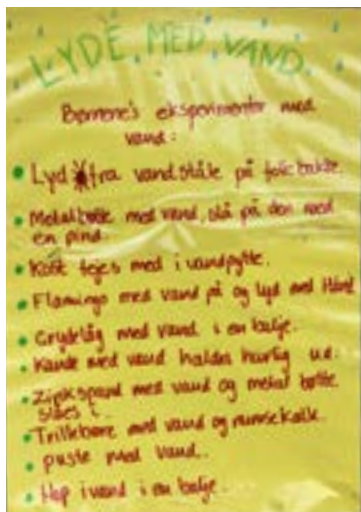 LYDE MED VAND.
Børnene's eksperimenter med
vand:
Lyd fra vandstråle på foliebakke.
Metalbøtte med vand, slå på den med
en pind.
Kost fejes med i vandpytte.
Flamingo med vand på og lyd med
Grydelåg med vand i en balje.
Kande med vand hældes hurtig ud.
Zinkspand med vand og metal bøtte
slåes i.
Trillebøre med vand og
puste med vand.
Hop i vand i en balje.